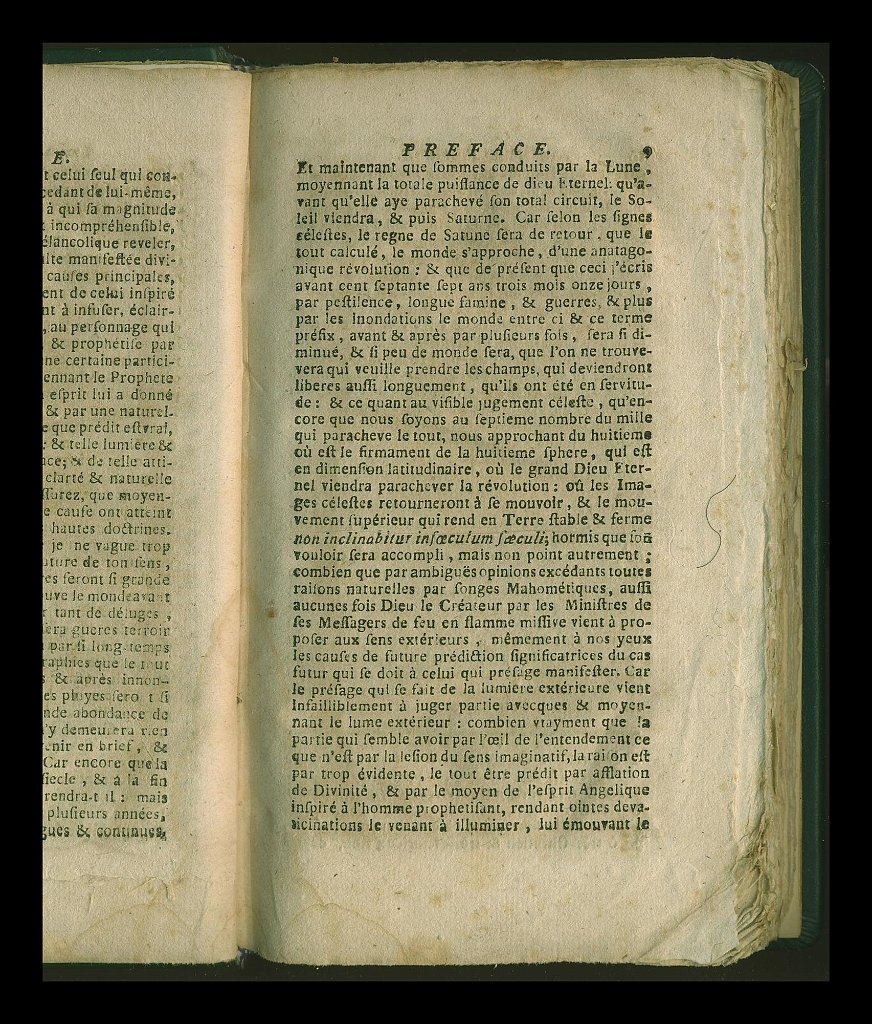 E.
t celui ſeul qui con-
cedant de lui-même,
à qui ſa magnitude
incompréhenſible,
élancolique reveler,
lte manifeſtée divi-
cauſes principales,
ent de celui inſpiré
nt à infuſer, éclair-
, au perſonnage qui
& prophétiſe par
ne certaine partici-
ennant le Prophete
eſprit lui a donné
& par une naturel-
e que prédit eſt vrai,
: & telle lumiére &
ce; & de telle alti-
clarté & naturelle
ſſurez, que moyen-
e cauſe ont atteint
hautes doctrines.
je ne vague trop
uture de ton ſens,
es ſeront ſi grande
uve le monde avant
tant de déluges,
era gueres terroir
par ſi long-temps
raphies que le tout
& après innon-
es pluyes ſero t ſi
nde abondance de
'y demeurera rien
enir en brief, &
Car encore que la
ſiecle, & à la fin
rendra-t il : mais
pluſieurs années,
gues & continues,
PREFACE. 9
Et maintenant que ſommes conduits par la Lune,
moyennant la totale puiſſance de dieu Eternel: qu'a-
vant qu'elle aye parachevé ſon total circuit, le So-
leil viendra, & puis Saturne. Car ſelon les ſignes
céleſtes, le regne de Satune ſera de retour, que le
tout calculé, le monde s'approche, d'une anatago-
nique révolution : & que de préſent que ceci j'écris
avant cent ſeptante ſept ans trois mois onze jours,
par peſtilence, longue famine, & guerres, & plus
par les Inondations le monde entre ci & ce terme
préfix, avant & après par pluſieurs fois, ſera ſi di-
minué, & ſi peu de monde ſera, que l'on ne trouve-
vera qui veuille prendre les champs, qui deviendront
liberes auſſi longuement, qu'ils ont été en ſervitu-
de : & ce quant au viſible jugement céleſte, qu'en-
core que nous ſoyons au ſeptieme nombre du mille
qui paracheve le tout, nous approchant du huitieme
où eſt le firmament de la huitieme ſphere, qui eſt
en dimenſion latitudinaire, où le grand Dieu Eter-
nel viendra parachever la révolution : où les Ima-
ges céleſtes retourneront à ſe mouvoir, & le mou-
vement ſupérieur qui rend en Terre ſtable & ferme
non inclinabitur inſœculum ſœculi; hormis que ſon
vouloir ſera accompli, mais non point autrement ;
combien que par ambiguës opinions excédants toutes
raiſons naturelles par ſonges Mahométiques, auſſi
aucunes fois Dieu le Créateur par les Miniſtres de
ſes Meſſagers de feu en flamme miſſive vient à pro-
poſer aux ſens extérieurs, mêmement à nos yeux
les cauſes de future prédiction ſignificatrices du cas
futur qui ſe doit à celui qui préſage manifeſter. Car
le préſage qui ſe fait de la lumiere extérieure vient
Infailliblement à juger partie avecques & moyen-
nant le lume extérieur : combien vrayment que la
partie qui ſemble avoir par l'œil de l'entendement ce
que n'eſt par la leſion du ſens imaginatif, la rai on eſt
par trop évidente, le tout être prédit par afflation
de Divinité, & par le moyen de l'eſprit Angelique
inſpiré à l'homme prophetiſant, rendant ointes deva-
ticinations le venant à illuminer, lui émouvant le